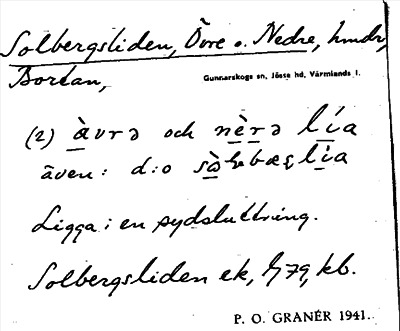 Solbergsliden, Övre o. Nedre, hmdr,
Bortan,
Gunnarskogs sn, Jösse hd, Värmlands l.
(2) àvrə och nèrə lía
även: d:o
Ligga i en sydsluttning.
Solbergsliden ek,
kb.
P. O. GRANÉR 1941.